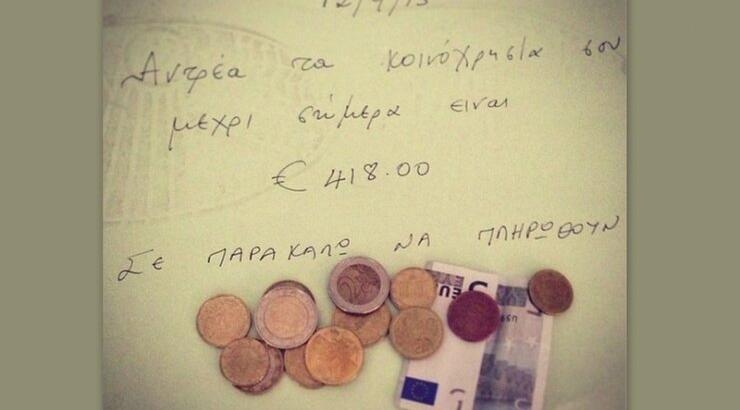 12/4/13
Αντρέα τα κοινόχρηστα σου
μεχρι σημερα ειναι
€ 418.00
Σε ΠΑΡΑΚΑΛΩ ΝΑ ΠΛΗΡΩΘΟΥΝ
5
EU